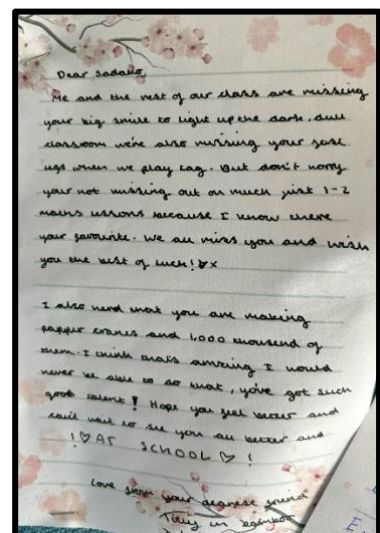 Dear Sadako,
Me and the rest of our class are missing
your big smile to light up the dark, dull
classroom we're also missing your fast
legs when we play tag. But don't worry
your not missing out on much just 1-2
maths lessons because I know there
your favourite. We all miss you and wish
you the best of luck! x
I also herd that you are making
papper cranes and 1,000 thousend of
them. I think thats amazing I would
never be able to do that, you've got such
good talent! Hope you feel better and
can't wait to see you all better and
! ♡ AT SCHOOL ♡ !
love from your dearest friend
Tilly in